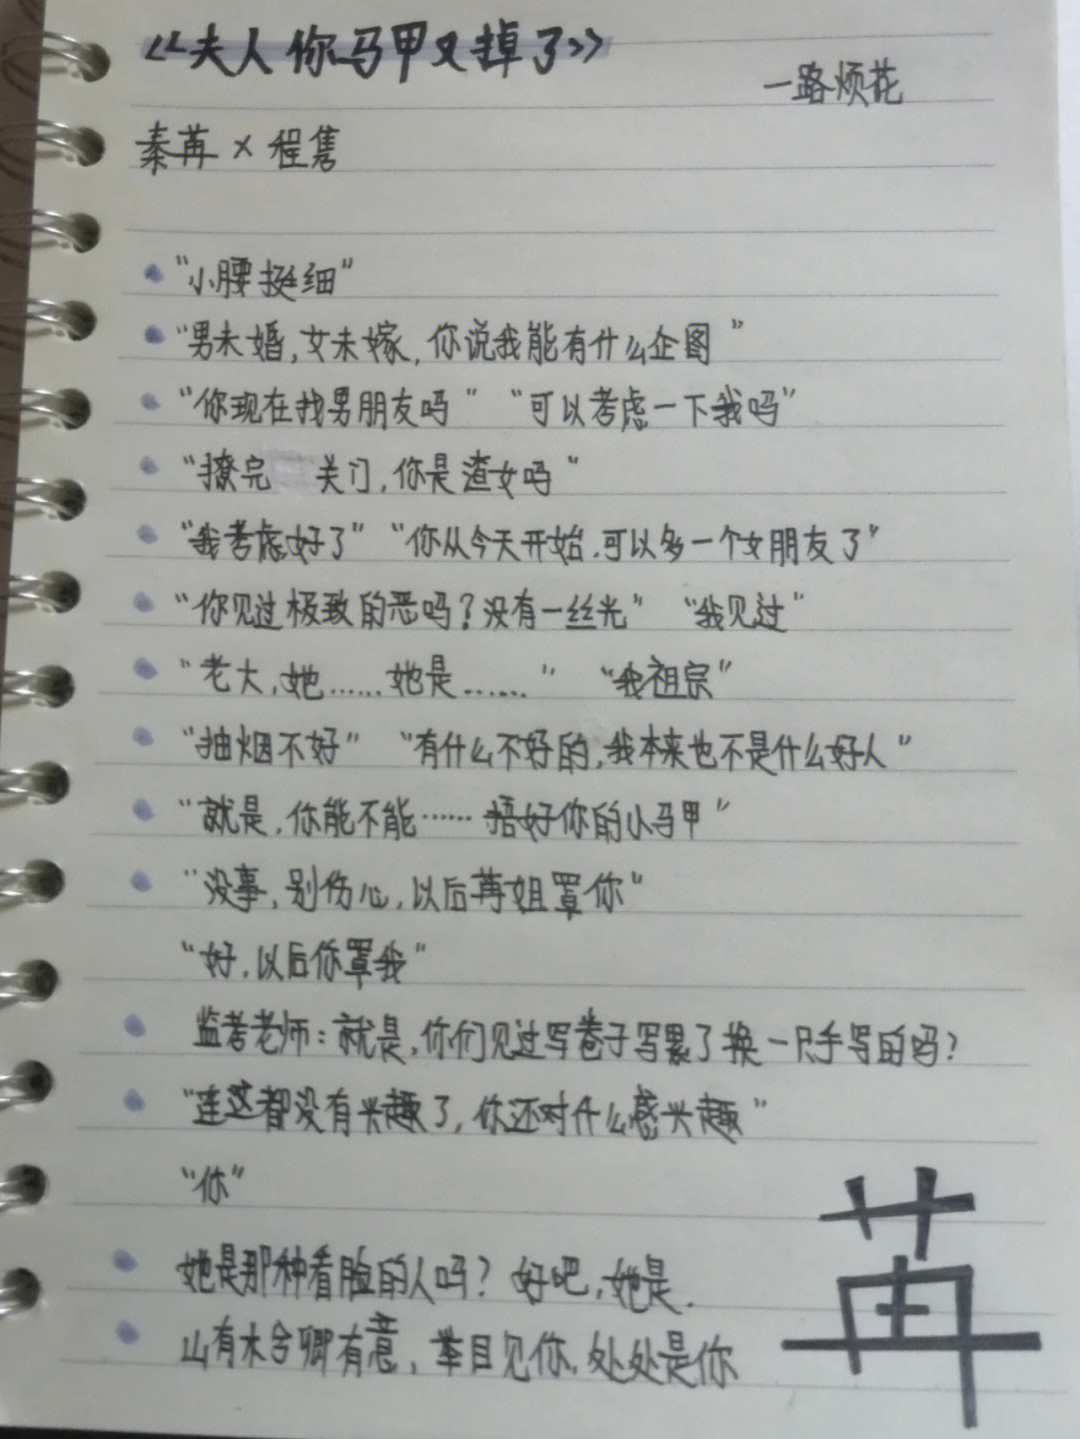 《夫人你马甲又掉了》
一路烦花
秦苒×程隽
“小腰挺细”
“男未婚，女未嫁，你说我能有什么企图”
“你现在找男朋友吗”“可以考虑一下我吗”
“撩完 关门，你是渣女吗“
“我考虑好了”“你从今天开始，可以多一个女朋友了”
“你见过极致的恶吗？没有一丝光”“我见过”
“老大，她……她是……”“我祖宗”
“抽烟不好”“有什么不好的，我本来也不是什么好人”
“就是，你能不能……捂好你的小马甲”
“没事，别伤心，以后苒姐罩你”
“好，以后你罩我”
监考老师：就是，你们见过写卷子写累了换一只手写的吗？
“连这都没有兴趣了，你还对什么感兴趣”
“你”
她是那种看脸的人吗？好吧，她是.
山有木兮卿有意，举目见你，处处是你
苒